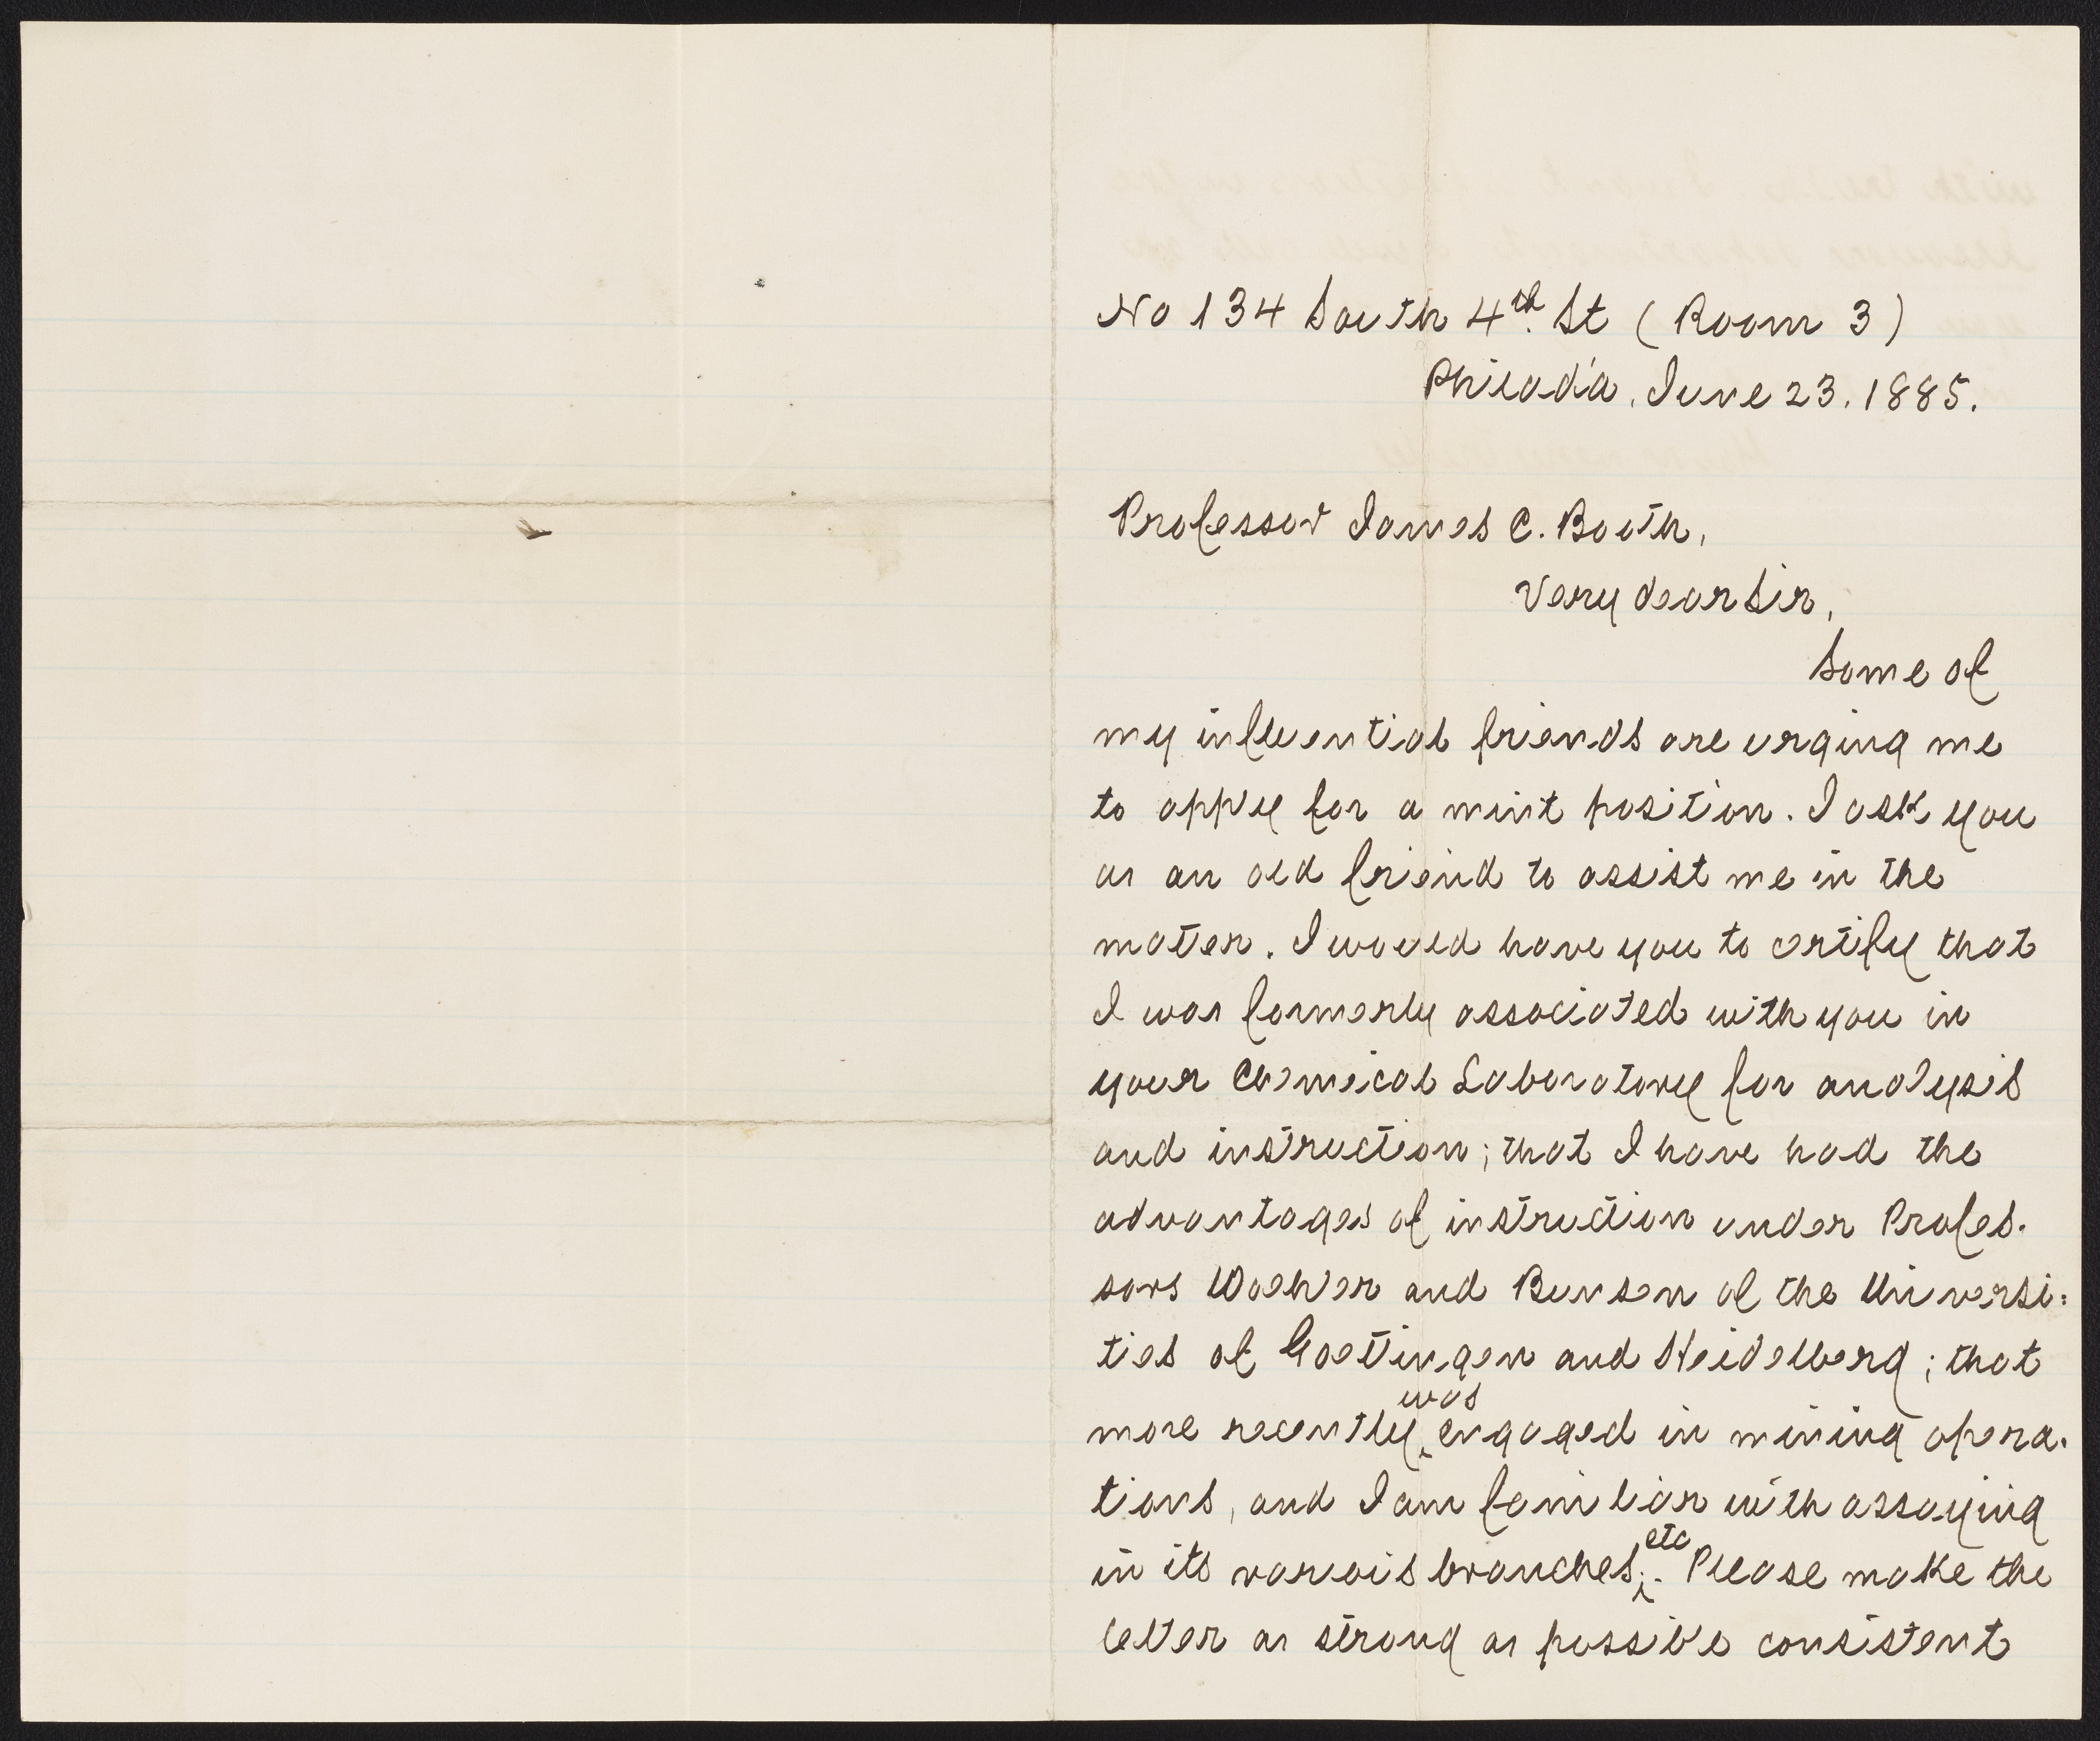 No 134 South 4th. St (Room 3)
Philad'a, June 23. 1885.
Professor James C. Booth,
Very dear Sir,
Some of
my influential friends are urging me
to apply for a mint position. I ask you
as an old friend to assist me in the
matter. I would have you to certify that
I was formerly associated with you in
your Chemical Laboratory for analysis
and instruction; that I have had the
advantages of instruction under Profes-
sors Woehler and Bunsen of the Universi-
ties of Goettingen and Heidelberg; that
was
more recently ‸ engaged in mining opera-
tions, and I am familiar with assaying
etc
in its various branches,‸. Please make the
letter as strong as possible consistent